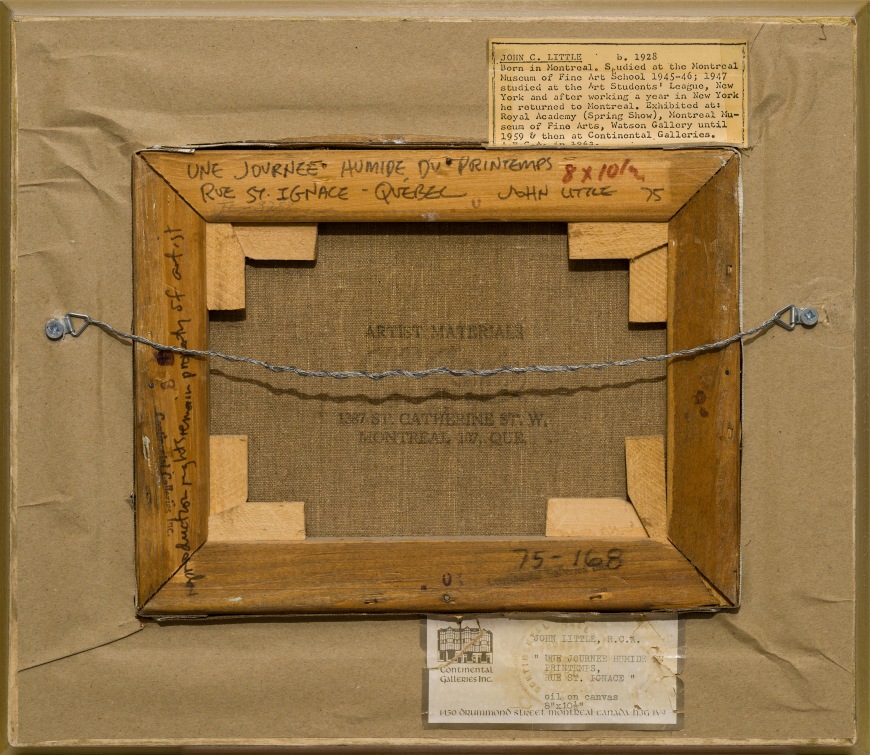 JOHN C. LITTLE b. 1928
Born in Montreal. Studied at the Montreal
Museum of Fine Art School 1945-46; 1947
studied at the Art Students' League, New
York and after working a year in New York
he returned to Montreal. Exhibited at:
Royal Academy (Spring Show), Montreal Mu-
seum of Fine Arts, Watson Gallery until
1959 & then at Continental Galleries.
UNE JOURNEE HUMIDE DU PRINTEMPS 8 X 10/2
RUE ST. IGNACE - QUEBEC JOHN LITTLE 75
reproduction rights remain property of artist
Galleries Inc.
ARTIST MATERIALS
1387 ST. CATHERINE ST. W.
MONTREAL 107, QUE.
75-168
Continental
Galleries Inc.
JOHN LITTLE, R.C.A.
" UNE JOURNEE HUMIDE
PRINTEMPS,
RUE ST. IGNACE "
oil on canvas
8"x10½"
1450 DRUMMOND STREET MONTREAL CANADA H3G 1V9